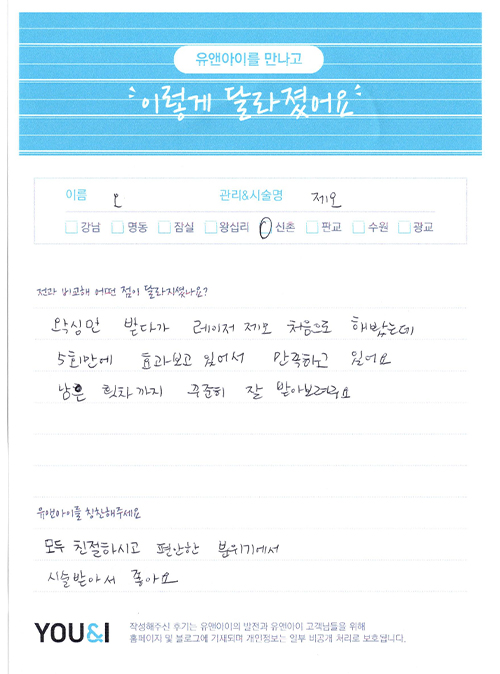 유앤아이를 만나고
이렇게 달라졌어요
이름 오 관리&시술명 제오
강남 명동 잠실 왕십리 신촌 판교 수원 광교
전과 비교해 어떤 점이 달라지셨나요?
왁싱만 받다가 레이저 제모 처음으로 해봤는데
5회만에 효과보고 있어서 만족하고 있어요
남은 횟차까지 꾸준히 잘 받아보려구요
유앤아이를 칭찬해주세요
모두 친절하시고 편안한 분위기에서
시술받아서 좋아요
YOU&I
작성해주신 후기는 유앤아이의 발전과 유앤아이 고객님들을 위해
홈페이지 및 블로그에 기재되며 개인정보는 일부 비공개 처리로 보호됩니다.